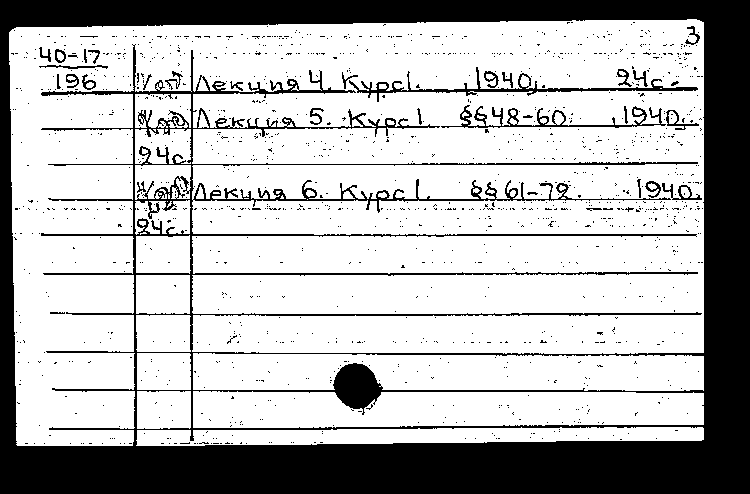 3
40-17
196 Лекция 4. Курс I. 1940. 24с.
Лекция 5. Курс I. §§48-60. 1940.
24с.
Лекция 6. Курс I. §§61-72. 1940.
24с.